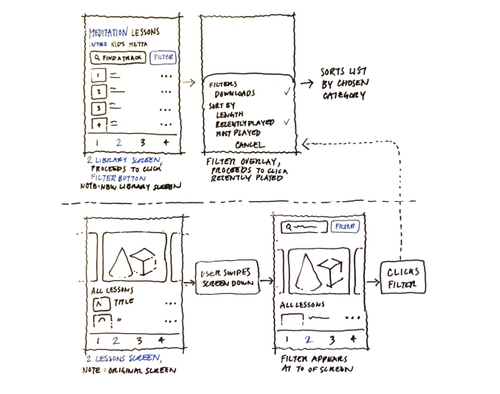 MEDITATION LESSONS
INTRO KIDS METTA
FIND A TRACK
FILTER
1
2
3
4
1 2 3 4
2 LIBRARY SCREEN,
PROCEEDS TO CLICK
FILTER BUTTON
NOTE: NEW LIBRARY SCREEN
FILTERS
DOWNLOADS ✓
SORT BY
LENGTH
RECENTLY PLAYED ✓
MOST PLAYED
CANCEL
FILTER OVERLAY,
PROCEEDS TO CLICK
RECENTLY PLAYED
SORTS LIST
BY CHOSEN
CATEGORY
ALL LESSONS
TITLE
"
1 2 3 4
2 LESSONS SCREEN,
NOTE: ORIGINAL SCREEN
USER SWIPES
SCREEN DOWN
FILTER
ALL LESSONS
1 2 3 4
FILTER APPEARS
AT TO OF SCREEN
CLICKS
FILTER